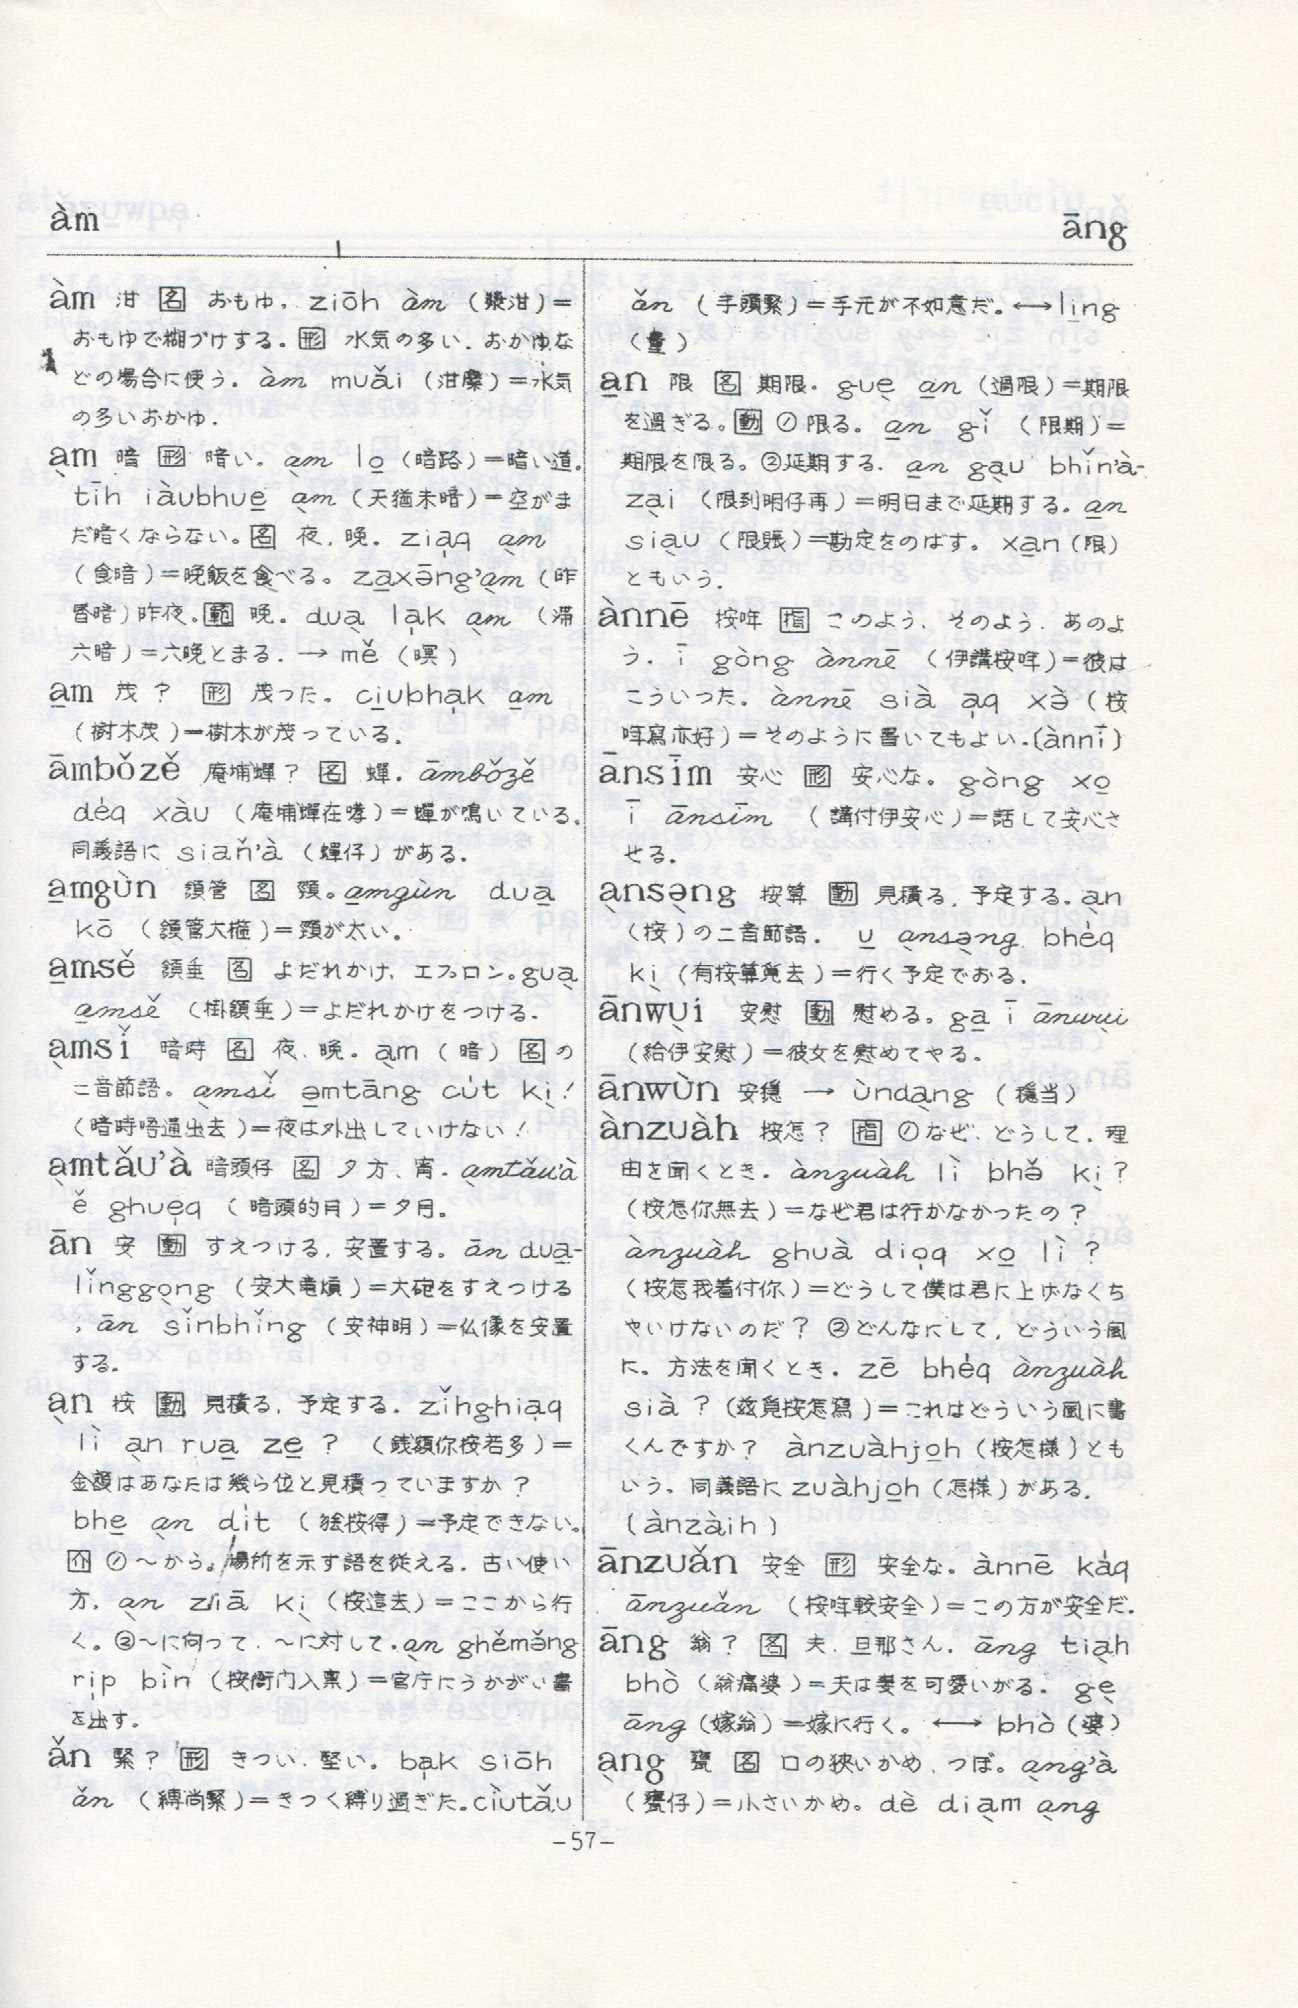 àm
āng
àm 泔 名 おもゆ. ziōh àm (漿泔)=
おもゆで糊づけする。形 水気の多い. おかゆな
どの場合に使う. àm muǎi (泔糜)=水気
の多いおかゆ.
a̱m 暗 形 暗い. am lo̱ (暗路)=暗い道。
tīh iàubhue̱ a̱m (天猶未暗)=空がま
だ暗くならない。名 夜, 晩. zia̍q a̱m
(食暗)=晩飯を食べる。 za̱xə̄ng'a̱m (昨
昏暗)昨夜。範 晩. dua̱ la̍k a̱m (滞
六暗)=六晩とまる. → mě (暝)
a̱m 茂 ? 形 茂った。 ciu̱bha̍k a̱m
(樹木茂)=樹木が茂っている.
āmbǒzě 庵埔蟬? 名 蟬. āmbǒzě
de̍q xàu (庵埔蟬在嘐)=蟬が鳴いている。
同義語に siaň'à (蟬仔)がある.
a̱mgùn 頷管 名 頸。a̱mgùn dua̱
kō (頷管大箍)=頸が太い。
a̱msě 頷垂 名 よだれかけ, エプロン。gua̱
a̱msě (掛頷垂)=よだれかけをつける.
a̱msǐ 暗時 名 夜, 晩. a̱m (暗) 名の
二音節語。 a̱msǐ ə̱mtāng cu̍t ki̱!
(暗時唔通出去)=夜は外出していけない!
a̱mtǎu'à 暗頭仔 名 夕方, 宵. a̱mtǎu'à
ě ghue̍q (暗頭的月)=夕月。
ān 安 動 すえつける, 安置する。 ān dua̱-
lǐnggo̱ng (安大竜熕)=大砲をすえつける
, ān sǐnbhǐng (安神明)=仏像を安置
する。
a̱n 按 動 見積る, 予定する. zǐhghia̍q
lì a̱n rua̱ ze̱ ? (銭額你按若多)=
金額はあなたは幾ら位と見積っていますか?
bhe̱ a̱n di̍t (𣍐按得)=予定できない。
介 ①〜から。場所を示す語を従える. 古い使い
方. a̱n ziā ki̱ (按這去)=ここから行
く。②〜に向って, 〜に対して. a̱n ghěmǎng
ri̍p bìn (按衙门入稟)=官庁にうかがい書
を出す.
ǎn 緊? 形 きつい. 堅い. ba̍k siōh
ǎn (縛尚緊)=きつく縛り過ぎた.ciùtǎu
ǎn (手頭緊)=手元が不如意だ. ←→li̱ng
(量)
a̱n 限 名 期限. gue̱ a̱n (過限)=期限
を過ぎる。動 ①限る. a̱n gǐ (限期)=
期限を限る。②延期する. a̱n ga̱u bhǐn'à-
za̱i (限到明仔再)=明日まで延期する. a̱n
sia̱u (限賬)=勘定をのばす。 xa̱n (限)
ともいう.
ànnē 按哖 指 このよう, そのよう, あのよ
う. ī gòng ànnē (伊講按哖)=彼は
こういった. ànnē sià a̍q xə̀ (按
哖寫亦好)=そのように書いてもよい.(ànnī)
ānsīm 安心 形 安心な。 gòng xo̱
ī ānsīm (講付伊安心)=話して安心さ
せる.
a̱nsə̱ng 按算 動 見積る, 予定する. an
(按)の二音節語. u̱ ansə̱ng bhe̍q
ki̱ (有按算覓去)=行く予定である.
ānwu̱i 安慰 動 慰める. ga̱ ī ānwu̱i
(給伊安慰)=彼女を慰めてやる。
ānwùn 安穩 → ùnda̱ng (穩当)
ànzuàh 按怎? 指 ①なぜ, どうして, 理
由を聞くとき. ànzuàh lì bhə̌ ki̱ ?
(按怎你無去)=なぜ君は行かなかったの?
ànzuàh ghuà dio̍q xo̱ lì ?
(按怎我着付你)=どうして僕は君に上げなくち
ゃいけないのだ? ②どんなにして, どういう風
に。方法を聞くとき. zē bhe̍q ànzuàh
sià ? (玆覓按怎寫)=これはどういう風に書
くんですか? ànzuàhjo̱h (按怎樣)とも
いう. 同義語に zuàhjo̱h (怎樣)がある.
(ànzàih)
ānzuǎn 安全 形 安全な. ànnē ka̍q
ānzuǎn (按哖較安全)=この方が安全だ.
āng 翁? 名 夫, 旦那さん. āng tia̱h
bhò (翁痛婆)=夫は妻を可愛いがる. ge̱
āng (嫁翁)=嫁に行く。 ←→ bhò (婆)
a̱ng 甕 名 口の狭いかめ, つぼ。 a̱ng'à
(甕仔)=小さいかめ。 dè dia̱m a̱ng
-57-